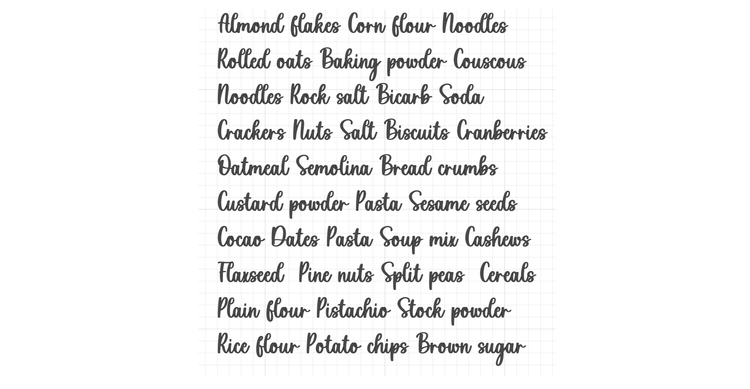 Almond flakes Corn flour Noodles
Rolled oats Baking powder Couscous
Noodles Rock salt Bicarb Soda
Crackers Nuts Salt Biscuits Cranberries
Oatmeal Semolina Bread crumbs
Custard powder Pasta Sesame seeds
Cocao Dates Pasta Soup mix Cashews
Flaxseed Pine nuts Split peas Cereals
Plain flour Pistachio Stock powder
Rice flour Potato chips Brown sugar